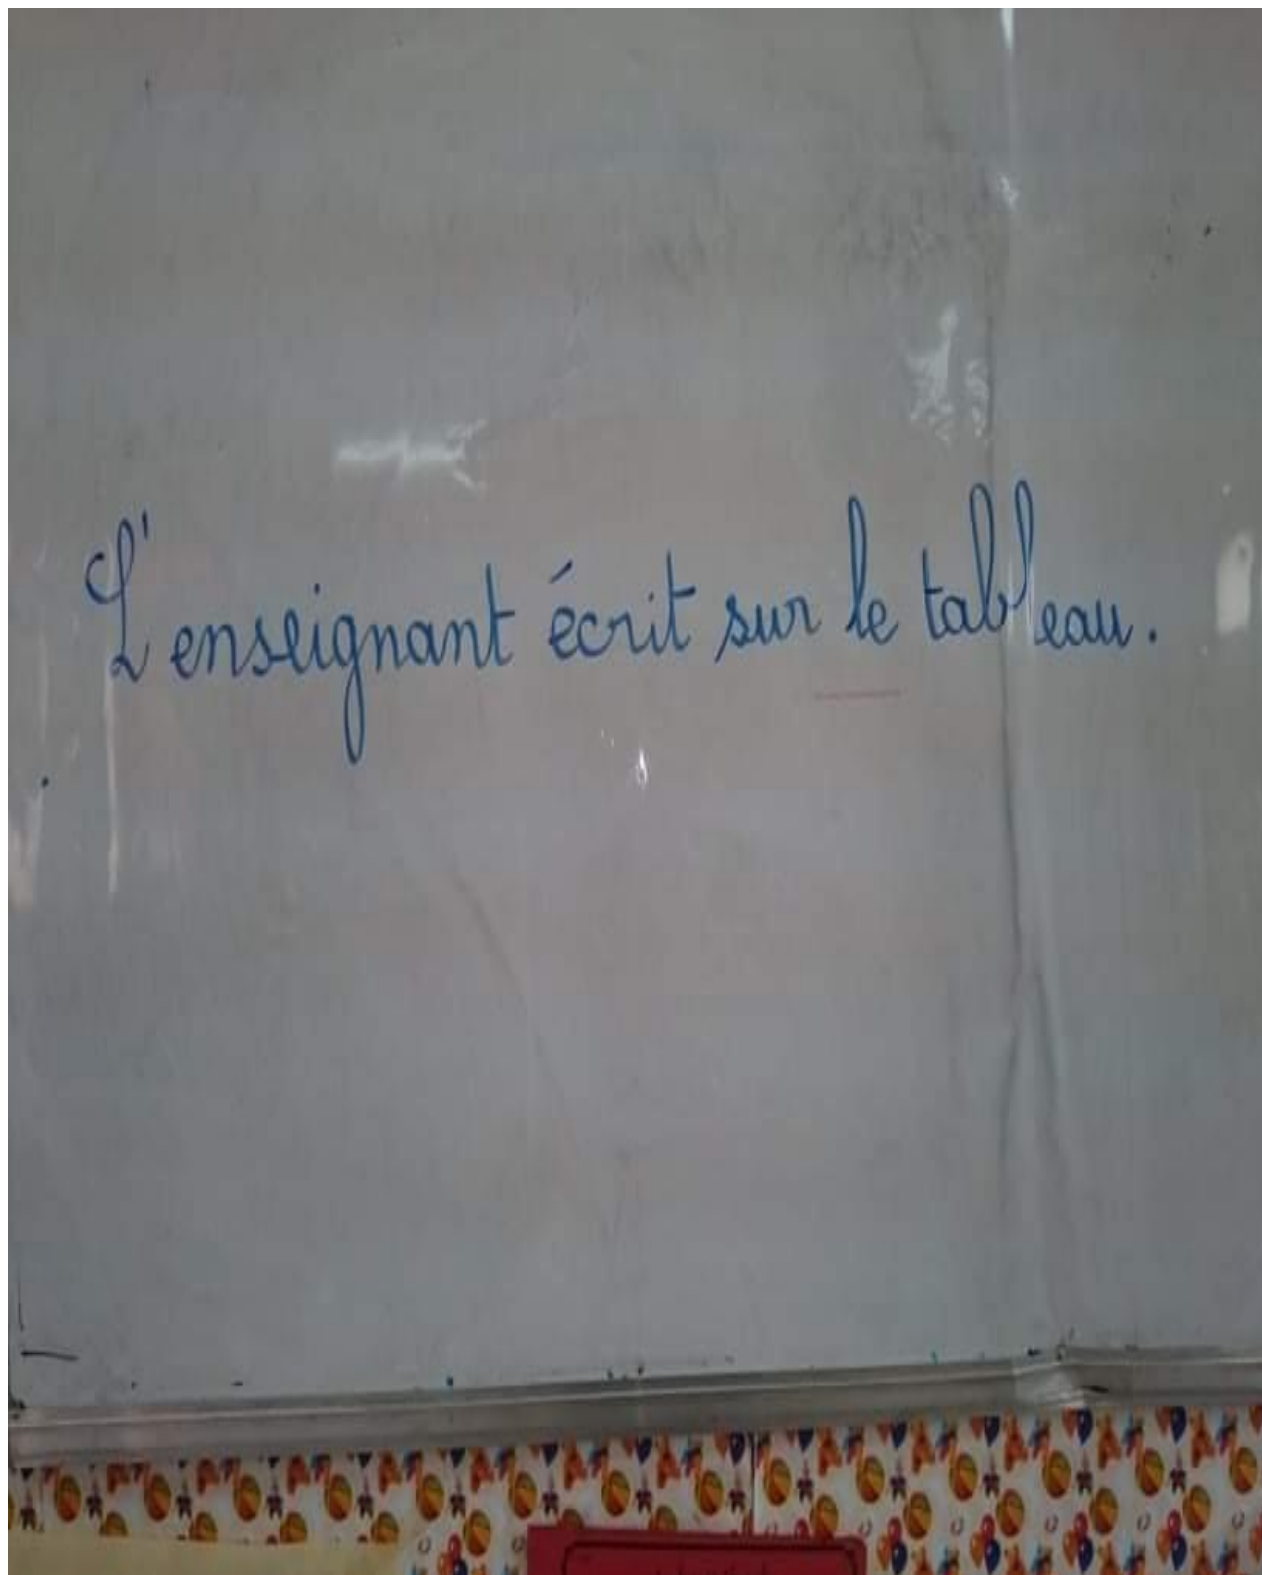 L'enseignant écrit sur le tableau.